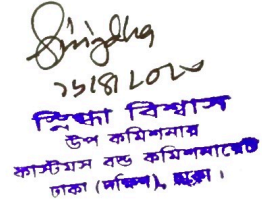 Snigdha
২৬/৪/২০২০
স্নিগ্ধা বিশ্বাস
উপ কমিশনার
কাস্টমস বন্ড কমিশনারেট
ঢাকা (দক্ষিণ), ঢাকা।